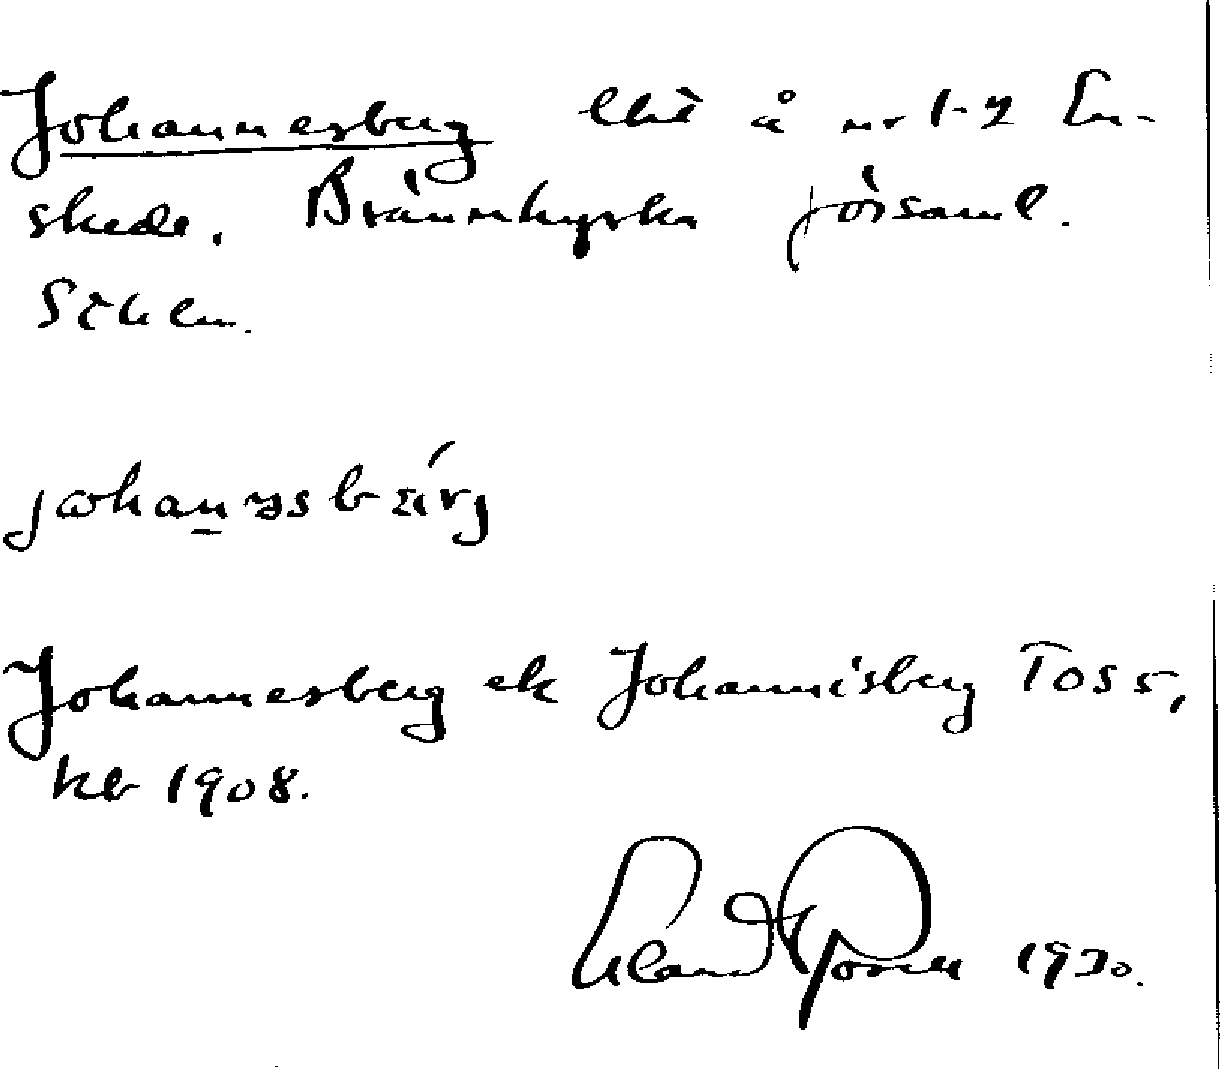 Johannesberg lht å nr 1-2 En-
skede. Brännkyrka församl.
Sthlm.
Johannesberg ek Johannisberg Toss,
kb 1908.
1930.